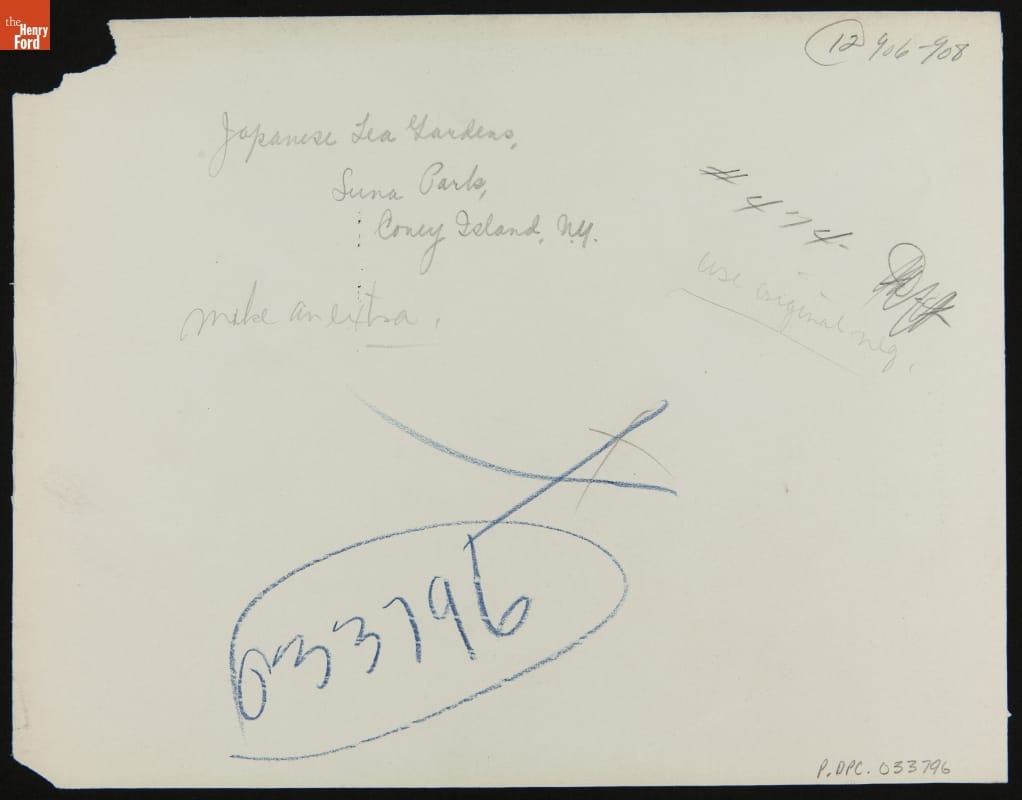 the
Henry
Ford
12 906-908
Japanese Tea Gardens,
Luna Park,
Coney Island, N.Y.
# 474
use original neg.
make an extra.
033796
P.DPC. 033796